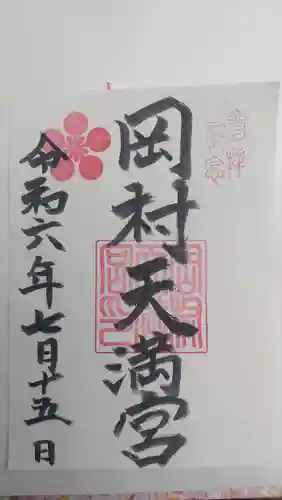 參拝
記念
岡村天満宮
令和六年七月十五日